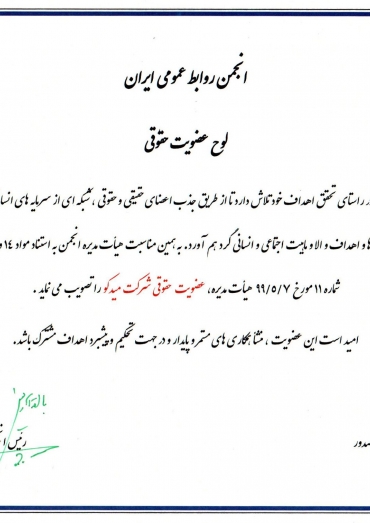 انجمن روابط عمومی ایران
لوح عضویت حقوقی
در راستای تحقق اهداف خود تلاش دارد تا از طریق جذب اعضای حقیقی و حقوقی، شبکه ای از سرمایه های انسا
ها و اهداف والا و ماهیت اجتماعی و انسانی گرد هم آورد. به همین مناسبت هیأت مدیره انجمن به استناد مواد ۱۴ و
شماره ۱۱ مورخ ۹۹/۵/۷ هیأت مدیره، عضویت حقوقی شرکت میدکو را تصویب می نماید.
امید است این عضویت، منشأ همکاری های مستمر و پایدار و در جهت تحکیم و پیشبرد اهداف مشترک باشد.
رئیس
صدور